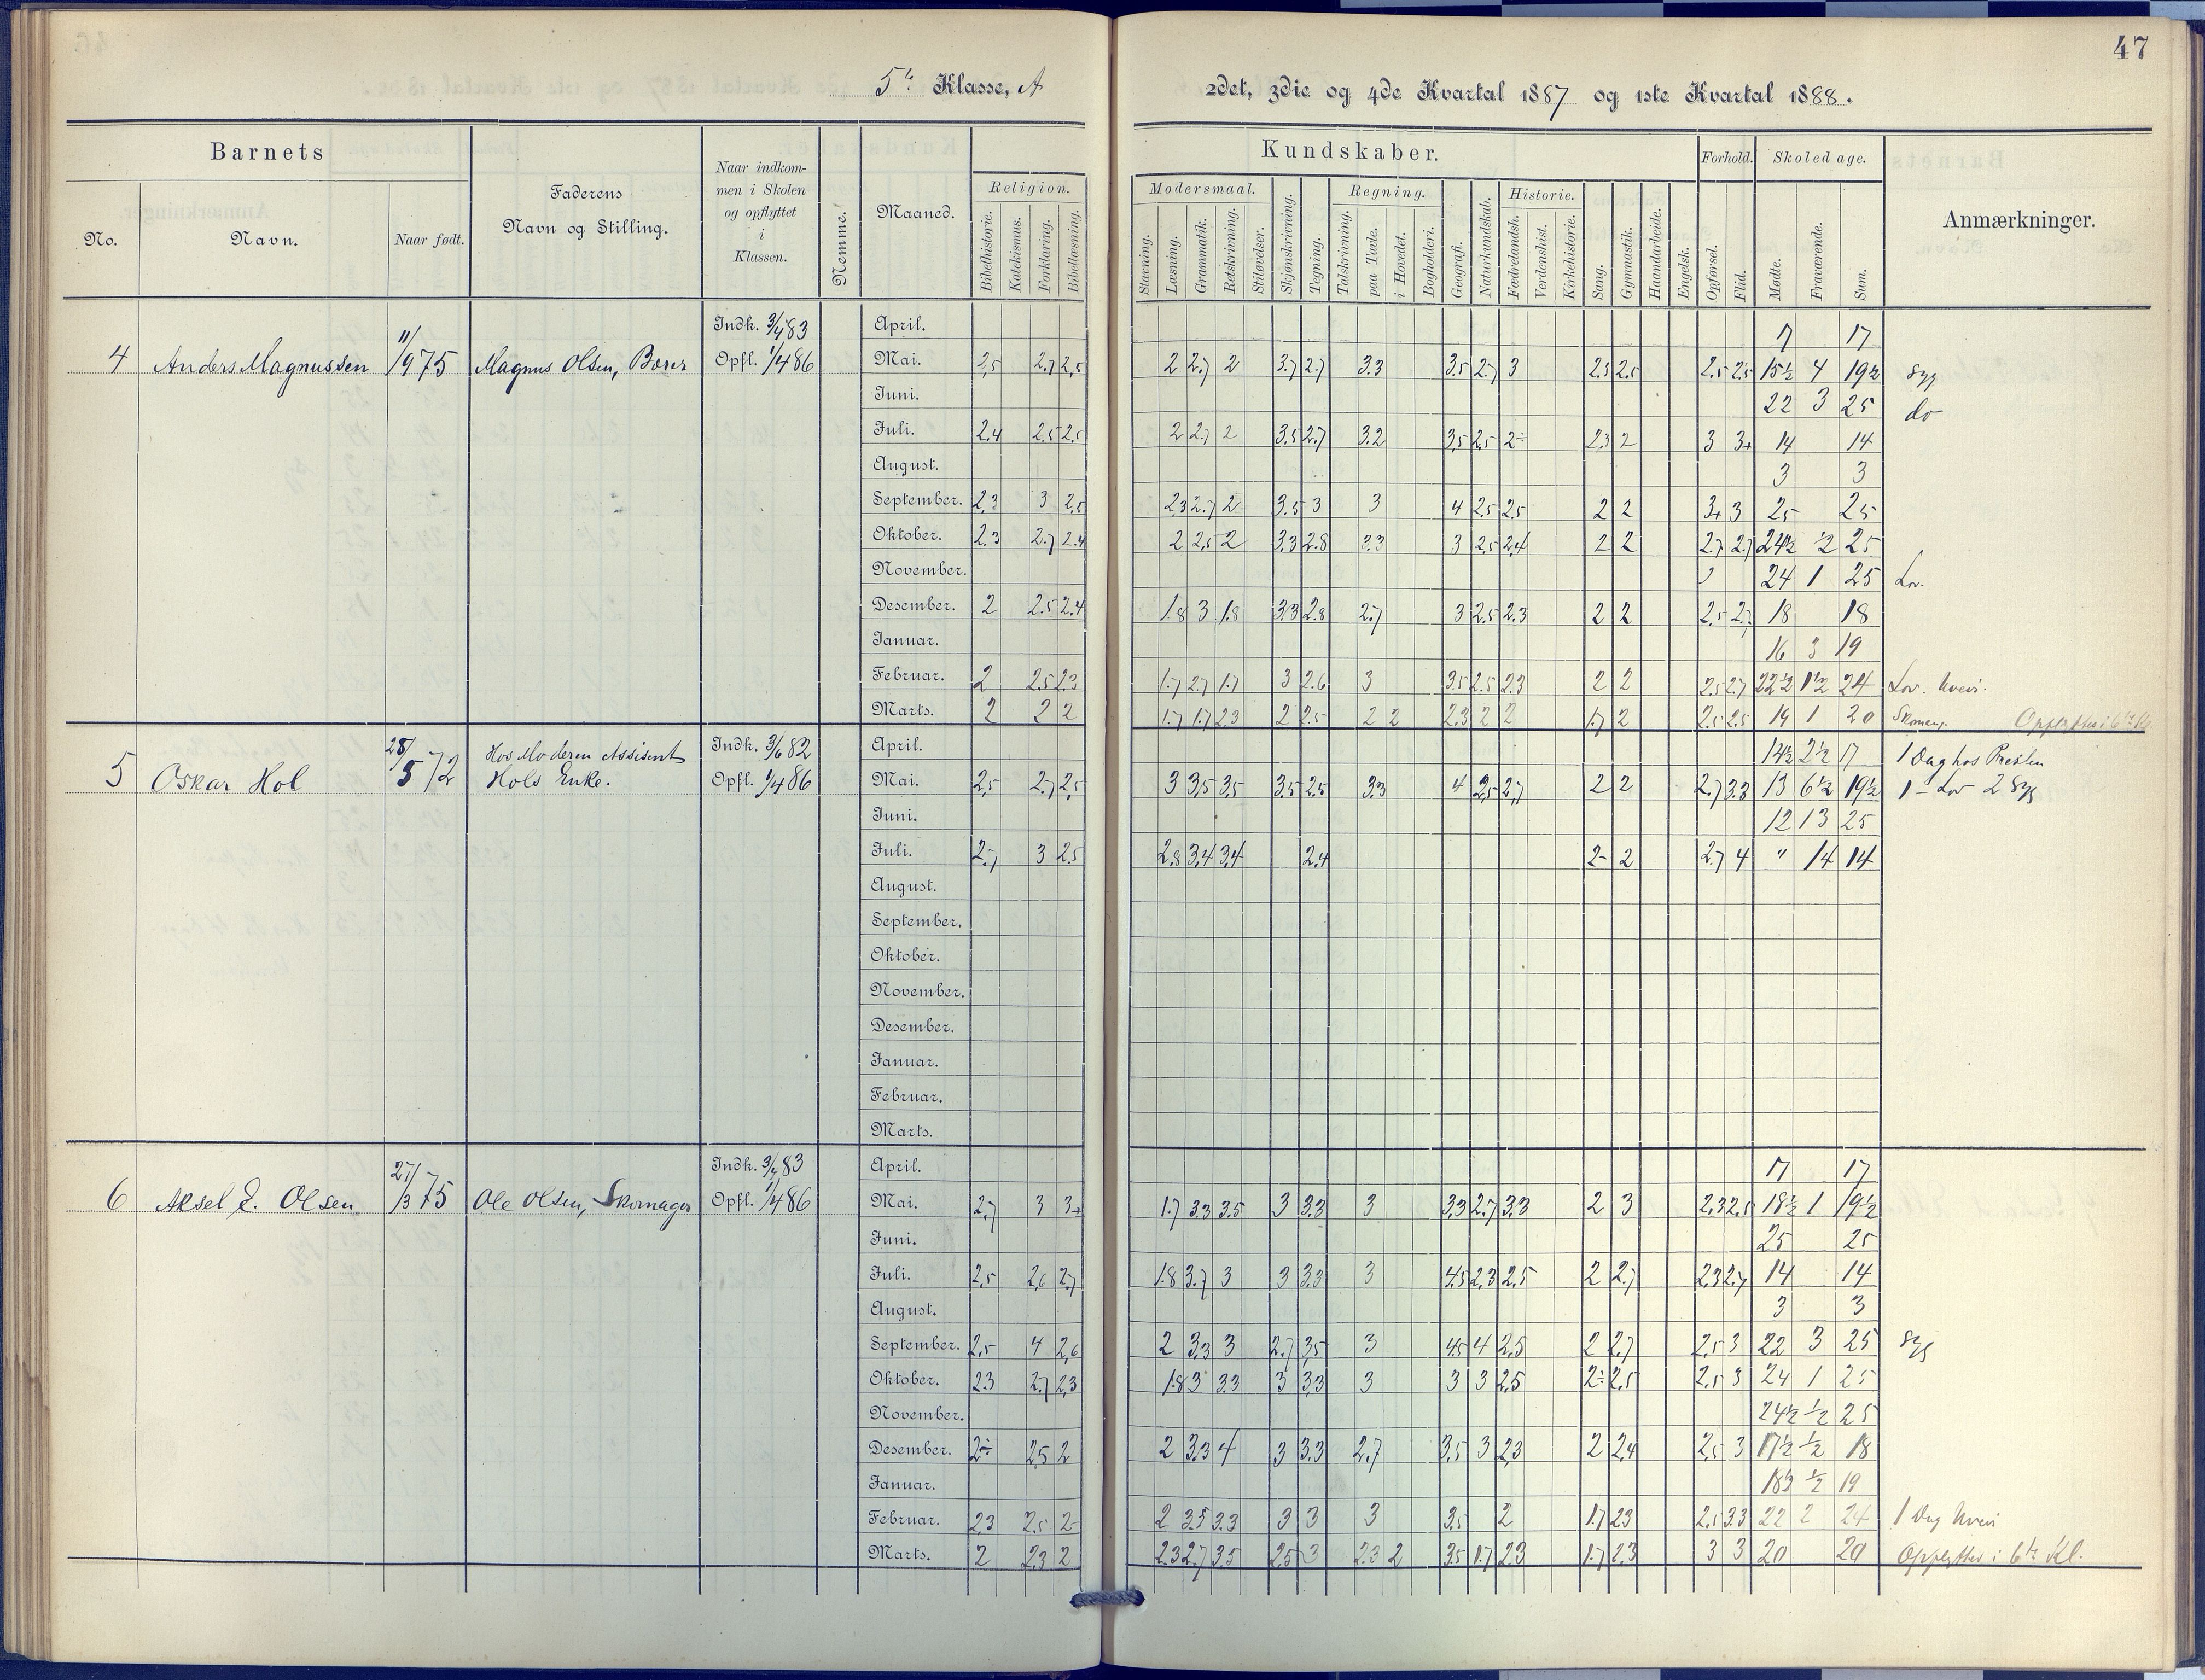 47
5te Klasse, A
2det, 3die og 4de Kvartal 1887 og 1ste Kvartal 1888.
Barnets
No.
Navn.
Naar født.
Faderens
Navn og Stilling.
Naar indkom-
men i Skolen
og opflyttet
i
Klassen.
Nemme.
Maaned.
Religion.
Bibelhistorie.
Katekismus.
Forklaring.
Bibellæsning.
Kundskaber.
Modersmaal.
Stavning.
Læsning.
Grammatik.
Retskrivning.
Stiløvelser.
Skjønskrivning.
Tegning.
Regning.
Talskrivning.
paa Tavle.
i Hovedet.
Bogholderi.
Geografi.
Naturkundskab.
Historie.
Fædrelandsh.
Verdenshist.
Kirkehistorie.
Sang.
Gymnastik.
Haandarbeide.
Engelsk.
Forhold.
Opførsel.
Flid.
Skoledage.
Mødte.
Fraværende.
Sum.
Anmærkninger.
4 Anders Magnussen 11/9 75 Magnus Olsen,
Indk. 3/4 83
Opfl. 1/4 86
April. 17 17
Mai. 2,5 2.7 2,5 2 2.7 2 3.7 2.7 3.3 3.5 2.7 3 2.5 2.5 2.5 2.5 15½ 4 19½ Syg
Juni. 22 3 25 do
Juli. 2.4 2.5 2.5 2 2.7 2 3.5 2.7 3.2 3,5 2,5 2÷ 2.3 2 3 3+ 14 14
August. 3 3
September. 2,3 3 2,5 2,3 2.7 2 3.5 3 3 4 2.5 2,5 2 2 3+ 3 25 25
Oktober. 2.3 2.7 2.4 2 2,5 2 3.3 2.8 3.3 3 2,5 2,4 2 2 2.7 2.7 24½ ½ 25
November. 24 1 25 Lov.
Desember. 2 2.5 2.4 1.8 3 1.8 3.3 2.8 2.7 3 2.5 2.3 2 2 2.5 2.7 18 18
Januar. 16 3 19
Februar. 2 2.5 2.3 1.7 2.7 1.7 3 2.6 3 3.5 2.5 2.3 2 2 2.5 2.7 22½ 1½ 24 Lov.
Marts. 2 2 2 1.7 1.7 2.3 2 2.5 2 2 2.3 2 2 1.7 2 2.5 2.5 19 1 20 Opflyttes i 6te Kl.
5 Oskar Hol 28/5 72 Hos Moderen Assistent
Hols Enke.
Indk. 3/6 82
Opfl. 1/4 86
April. 14½ 2½ 17 1 Dag hos Presten
Mai. 2,5 2.7 2,5 3 3,5 3,5 3.5 2.5 3.3 4 2,5 2,7 2 2 2.7 3.3 13 6½ 19½ 1 - Lov 2 Syg
Juni. 12 13 25
Juli. 2.7 3 2.5 2.8 3.4 3.4 2.4 2- 2 2.7 4 " 14 14
August.
September.
Oktober.
November.
Desember.
Januar.
Februar.
Marts.
6 Aksel E. Olsen 27/3 75 Ole Olsen, Skomager
Indk. 3/4 83
Opfl. 1/4 86
April. 17 17
Mai. 2,7 3 3+ 1.7 3.3 3.5 3 3.3 3 3.3 2.7 3.3 2 3 2,3 2.5 18½ 1 19½
Juni. 25 25
Juli. 2,5 2,6 2.7 1.8 3.7 3 3 3.3 3 4.5 2.3 2.5 2 2.7 2,3 2.7 14 14
August. 3 3
September. 2,5 4 2,6 2 3.3 3 2.7 3,5 3 4.5 4 2.5 2 2.7 2,5 3 22 3 25 Syg
Oktober. 2.3 2.7 2.3 1.8 3 3.3 3 3.3 3 3 3 2.5 2÷ 2,5 2.5 3 24 1 25
November. 24½ ½ 25
Desember. 2÷ 2.5 2 2 3.3 4 3 3.3 2.7 3.5 3 2.3 2 2.4 2.5 3 17½ ½ 18
Januar. 18½ ½ 19
Februar. 2,3 2.5 2- 2 3.5 3.3 3 3 3 3.5 2 1.7 2.3 2.5 3.3 22 2 24 1 Dag
Marts. 2 2.3 2 2.3 2.7 3.5 2.5 3 2.3 2 3.5 1.7 2.3 1.7 2.3 3 3 20 20 Opflyttes i 6te Kl.